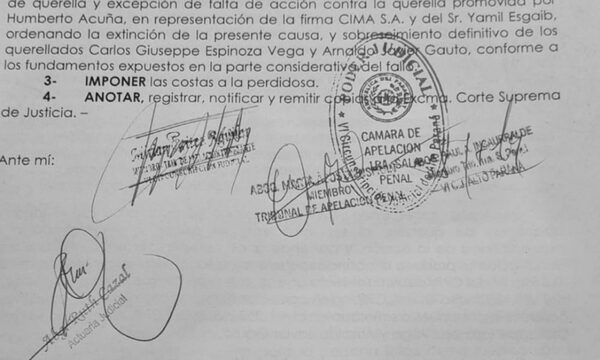 de querella y excepción de falta de acción contra la querella promovida por
Humberto Acuña, en representación de la firma CIMA S.A. y del Sr. Yamil Esgaib,
ordenando la extinción de la presente causa, y sobreseimiento definitivo de los
querellados Carlos Giuseppe Espinoza Vega y Arnaldo Javier Gauto, conforme a
los fundamentos expuestos en la parte considerativa del fallo.
3- IMPONER las costas a la perdidosa.
4- ANOTAR, registrar, notificar y remitir copia a la Excma. Corte Suprema
de Justicia. –
PODER JUDICIAL
CAMARA DE
APELACION
1RA. SALA
PENAL
MIEMBRO
TRIBUNAL DE APELACION PENAL
VI C.J. ALTO PARANA
Ante mí:
Abg. Ruth Cazal
Actuaria Judicial